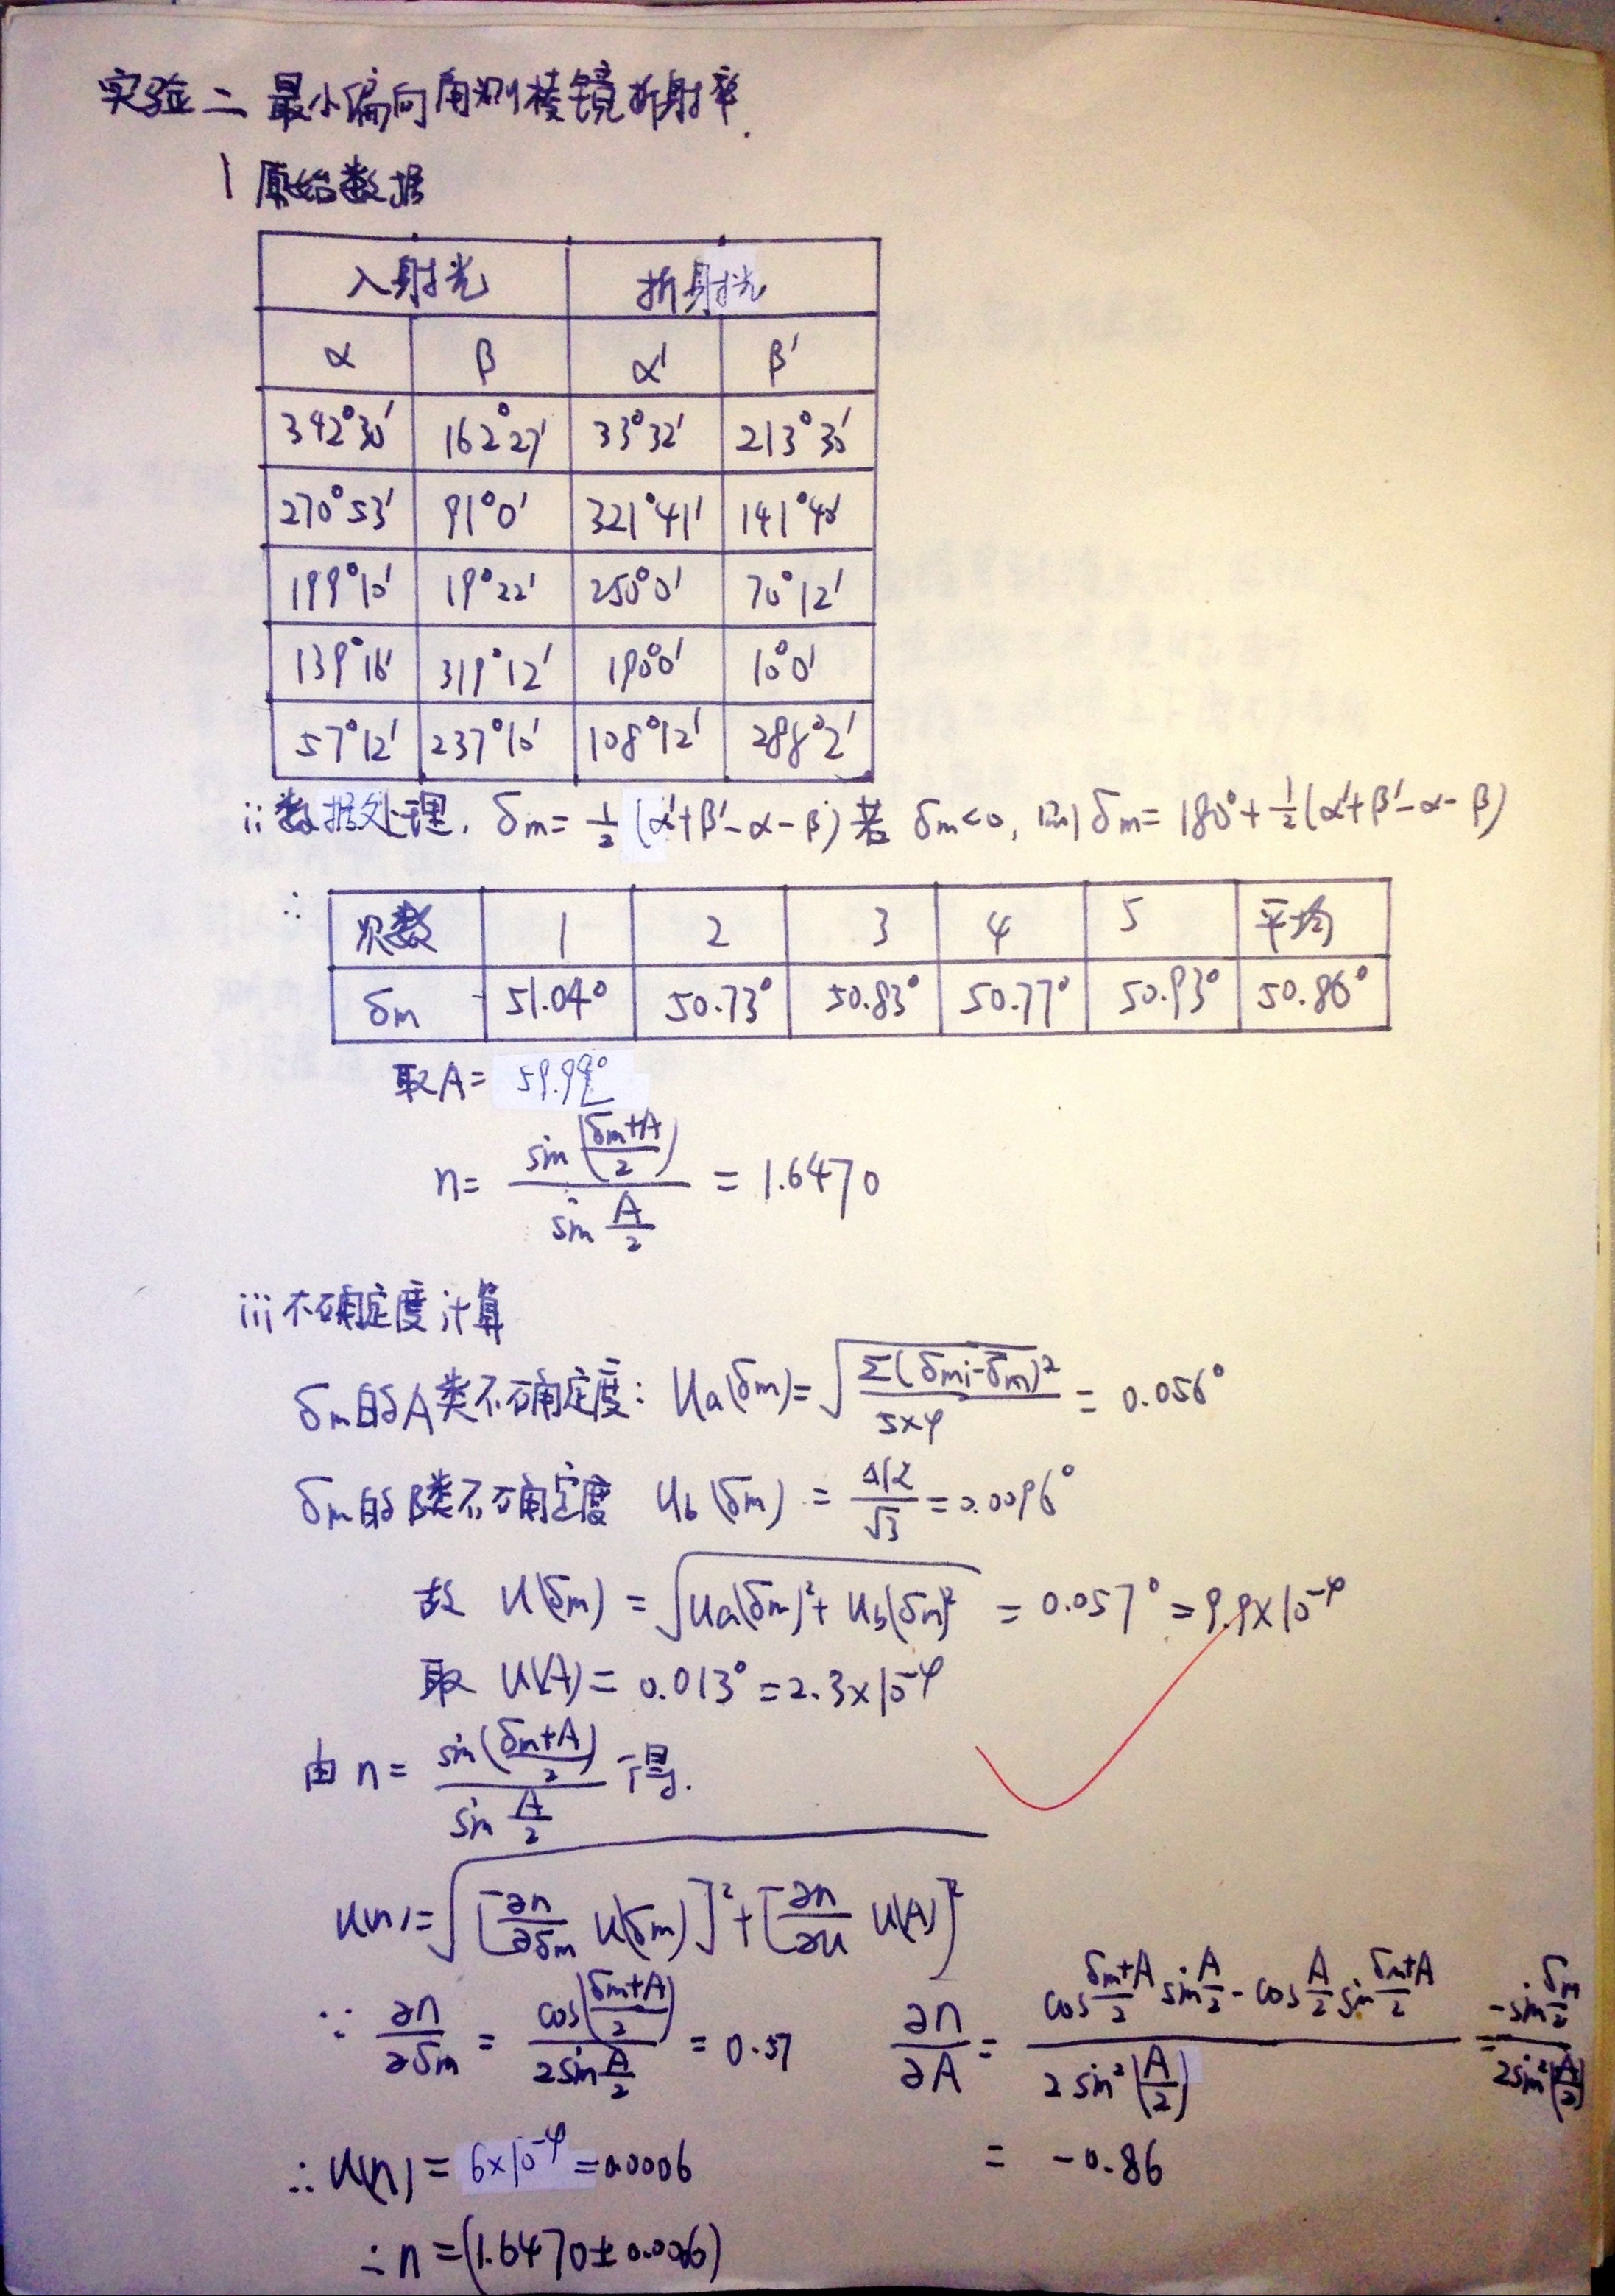 实验二 最小偏向角测棱镜折射率.
1 原始数据
入射光 折射光
α β α' β'
342°30' 162°27' 33°32' 213°30'
270°53' 91°0' 321°41' 141°40'
199°10' 19°22' 250°0' 70°12'
139°16' 319°12' 190°0' 10°0'
57°12' 237°10' 108°12' 288°2'
ii 数据处理. δm = 1/2 (α'+β'-α-β) 若 δm<0, 则 δm = 180°+1/2(α'+β'-α-β)
∴ 次数 1 2 3 4 5 平均
δm 51.04° 50.73° 50.83° 50.77° 50.93° 50.86°
取A = 59.99°
n = sin((δm+A)/2) / sin(A/2) = 1.6470
iii 不确定度计算
δm的A类不确定度: Ua(δm) = √(Σ(δmi-δ̄m)²/(5×4)) = 0.056°
δm的B类不确定度 Ub(δm) = (Δ/2)/√3 = 0.0096°
故 U(δm) = √(Ua(δm)²+Ub(δm)²) = 0.057° = 9.9×10⁻⁴
取 U(A) = 0.013° = 2.3×10⁻⁴
由 n = sin((δm+A)/2) / sin(A/2) 得.
U(n) = √([∂n/∂δm U(δm)]²+[∂n/∂u U(A)]²)
∵ ∂n/∂δm = cos((δm+A)/2) / (2sin(A/2)) = 0.57 ∂n/∂A = (cos((δm+A)/2) sin(A/2) - cos(A/2) sin((δm+A)/2)) / (2sin²(A/2)) = -sin(δm/2) / (2sin²(A/2))
= -0.86
∴ U(n) = 6×10⁻⁴ = 0.0006
∴ n = (1.6470±0.0006)